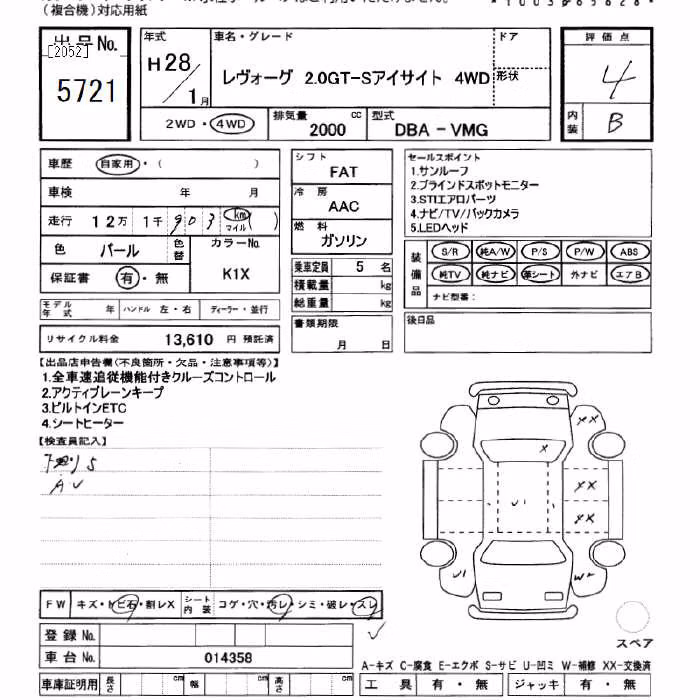 (複合機)対応用紙
出品No.
[2052]
5721
年式
H28/1月
車名・グレード
レヴォーグ 2.0GT-Sアイサイト 4WD
ドア
形状
評価点
4
内装
B
2WD・4WD
排気量
2000 cc
型式
DBA-VMG
車歴 自家用・( )
車検 年 月
走行 12万 1千 903 km マイル ( )
色 パール 色替
カラーNo. K1X
保証書 有・無
シフト
FAT
冷房
AAC
燃料
ガソリン
乗車定員 5 名
積載量 kg
総重量 kg
セールスポイント
1.サンルーフ
2.ブラインドスポットモニター
3.STIエアロパーツ
4.ナビ/TV/バックカメラ
5.LEDヘッド
装備品
S/R 純A/W P/S P/W ABS
純TV 純ナビ 革シート 外ナビ エアB
ナビ型番:
モデル年式 年 ハンドル 左・右 ディーラー・並行
リサイクル料金 13,610 円 預託済
書類期限
月 日
後日品
【出品店申告欄(不良箇所・欠品・注意事項等)】
1.全車速追従機能付きクルーズコントロール
2.アクティブレーンキープ
3.ビルトインETC
4.シートヒーター
【検査員記入】
AV
X
XX
XX
XX
U1
U1
W2
FW キズ・トビ石・割レX シート内装 コゲ・穴・汚レ・シミ・破レ・スレ
登録No.
車台No. 014358
スペア
A-キズ C-腐食 E-エクボ S-サビ U-凹ミ W-補修 XX-交換済
車庫証明用 長さ cm 幅 cm 高さ cm
工具 有・無 ジャッキ 有・無